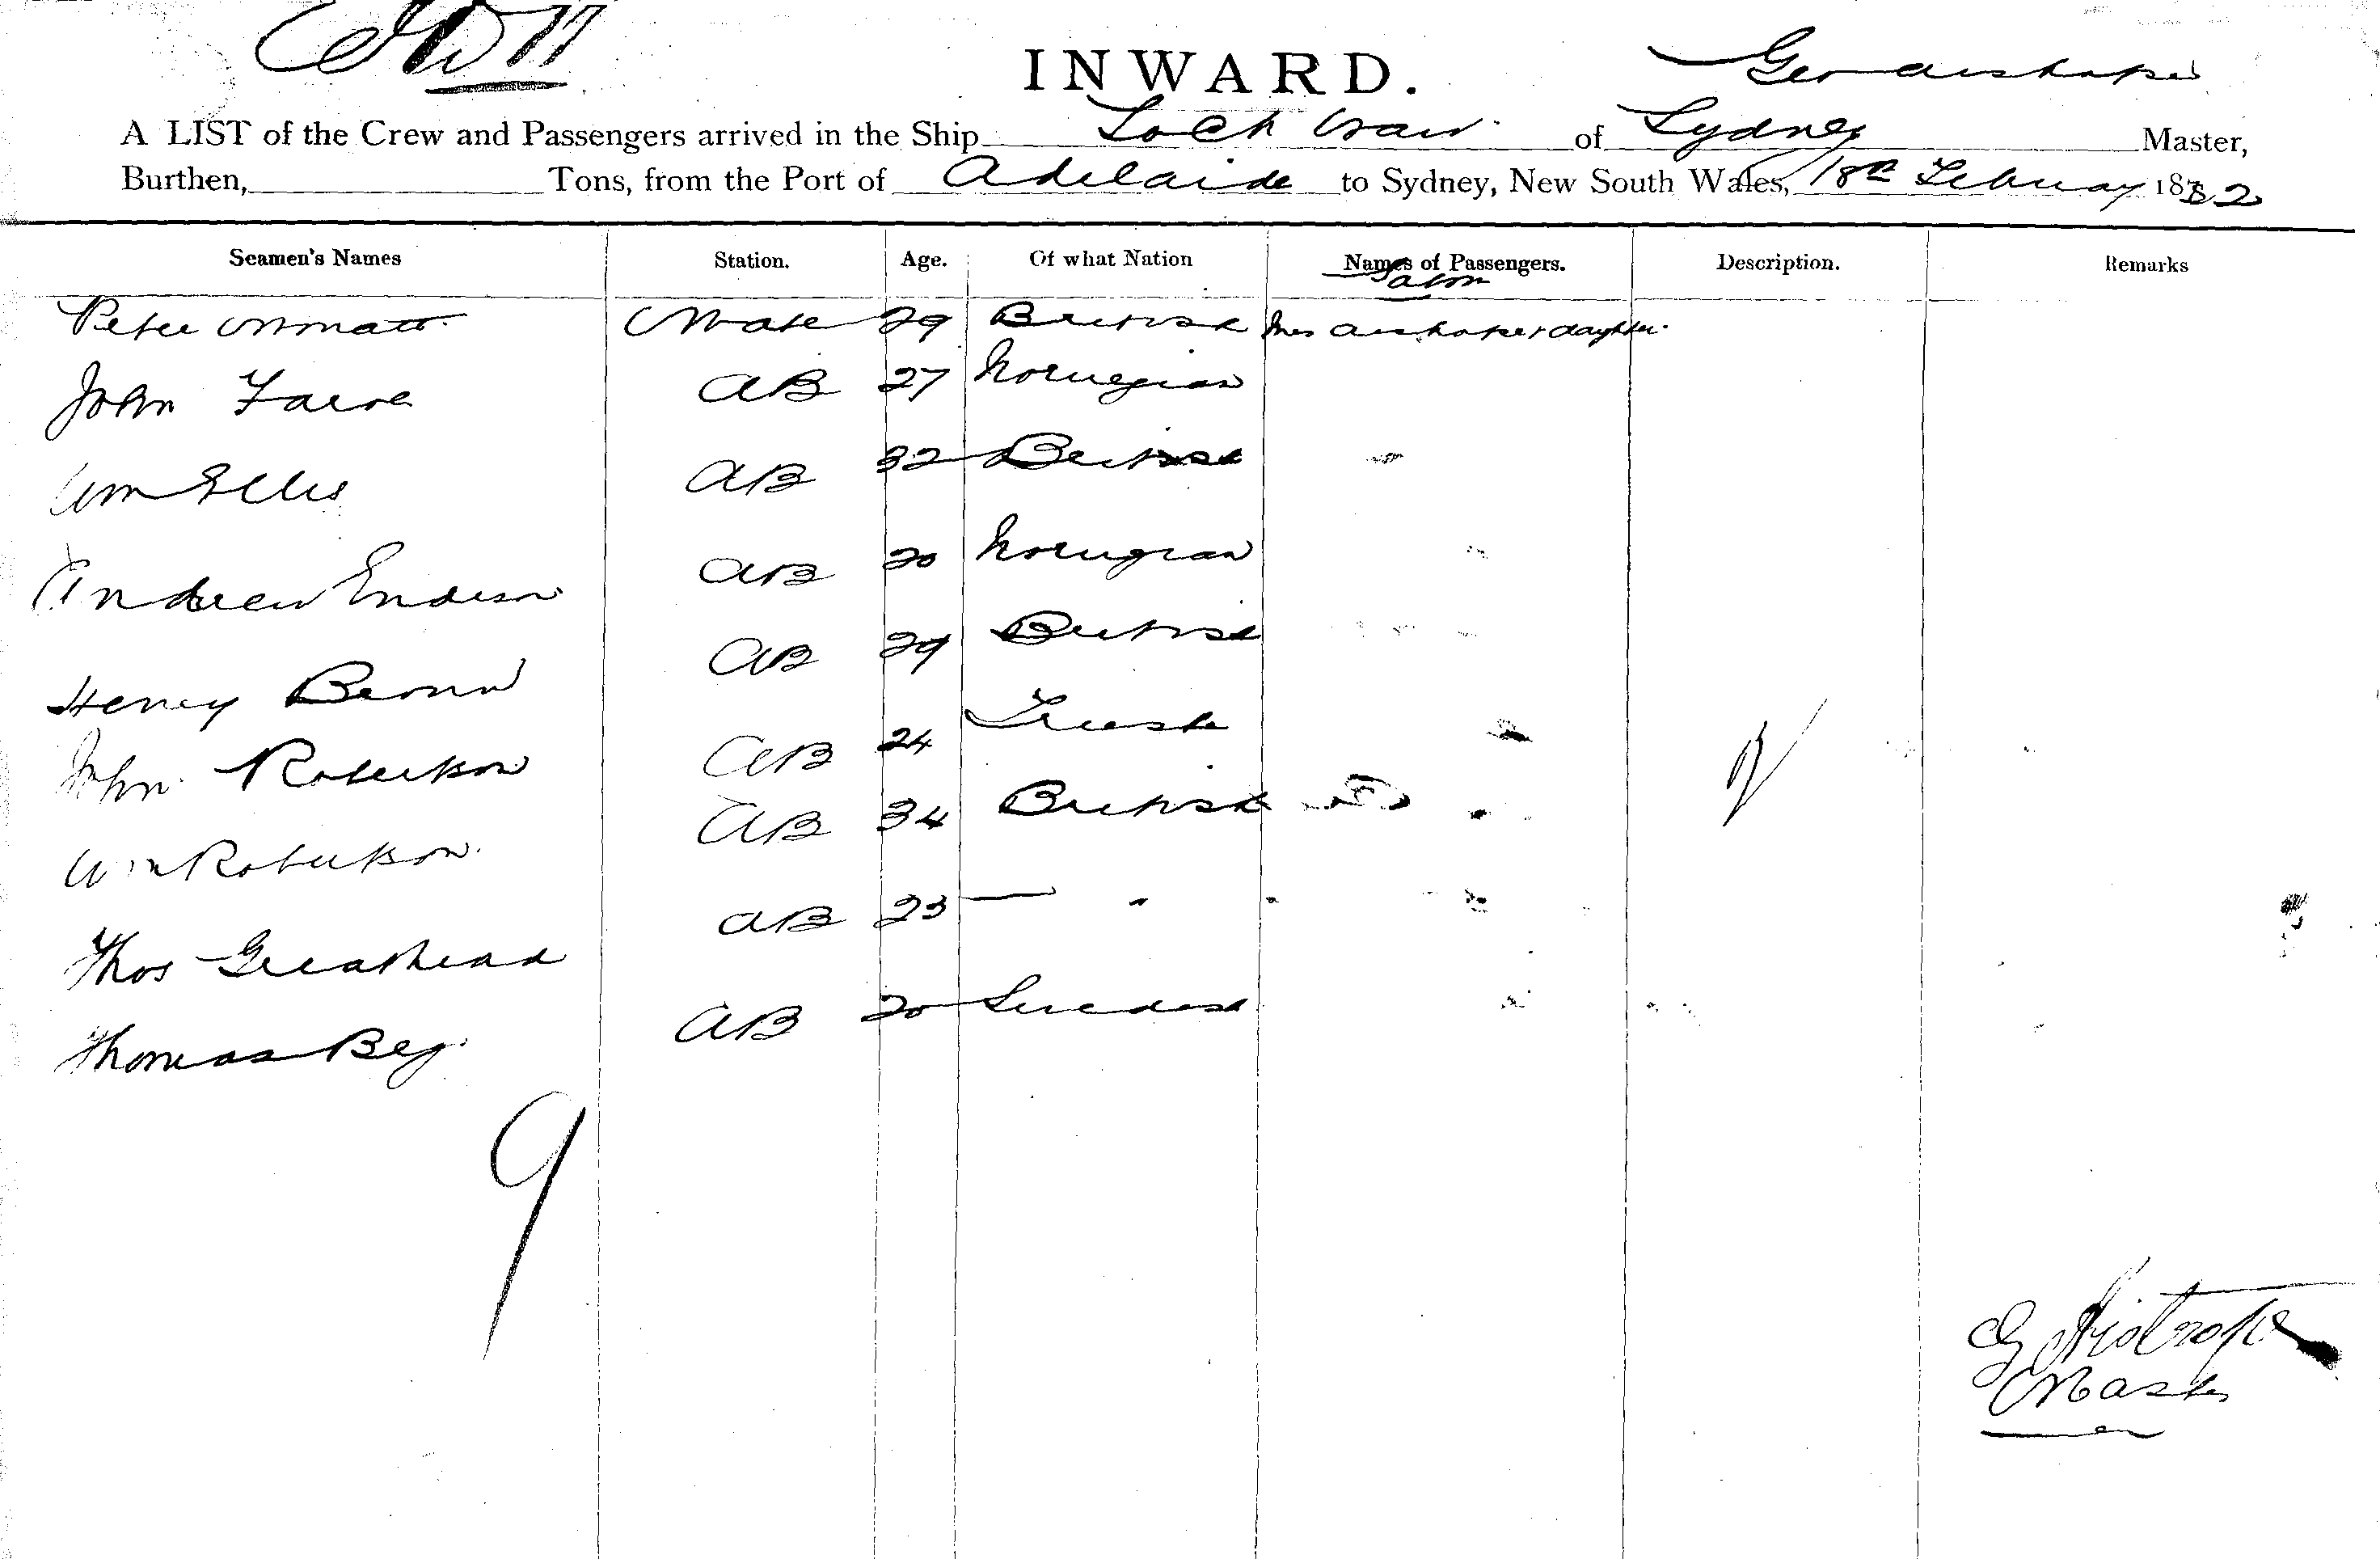 INWARD.
Geo
A LIST of the Crew and Passengers arrived in the Ship Loch of Sydney Master,
Burthen, Tons, from the Port of Adelaide to Sydney, New South Wales, 18th February 1882
Seamen's Names Station. Age. Of what Nation Names of Passengers. Description. Remarks
Peter Mate 29 British Mrs & daughter
John AB 27 Norwegian
Wm Ellis AB 32 British
Andrew Enderson AB 20 Norwegian
Henry Brown AB 29 British
John Robertson AB 24
Wm Robertson AB 34 British
Thos Greathead AB 23 — "
Thomas Beg. AB 20 Swedish
9
G Aistrope
Master